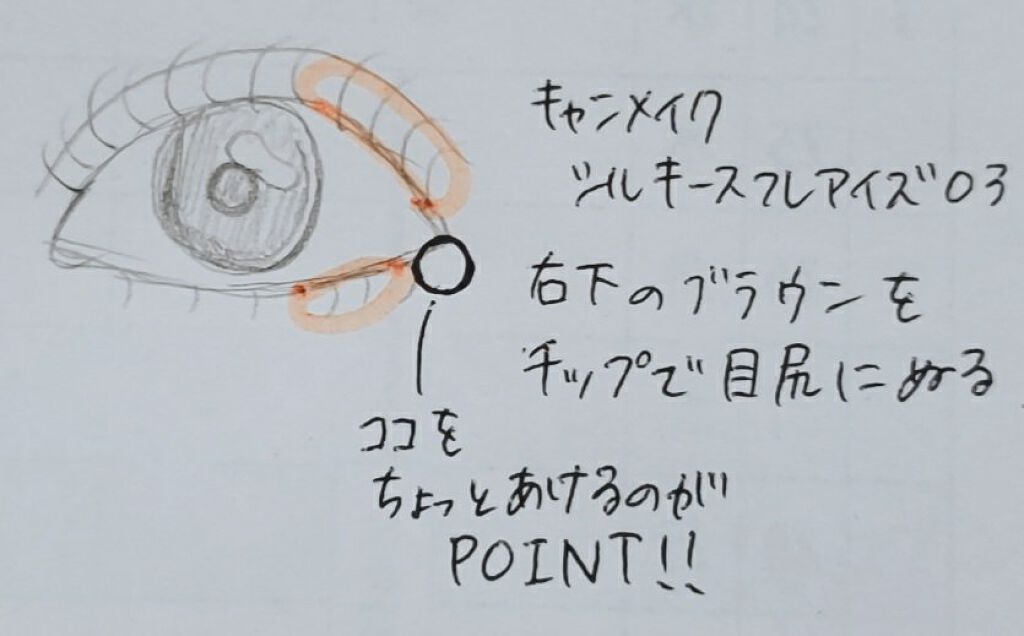 キャンメイク
シルキースフレアイズ03
右下のブラウンを
チップで目尻にぬる
ココを
ちょっとあけるのが
POINT!!